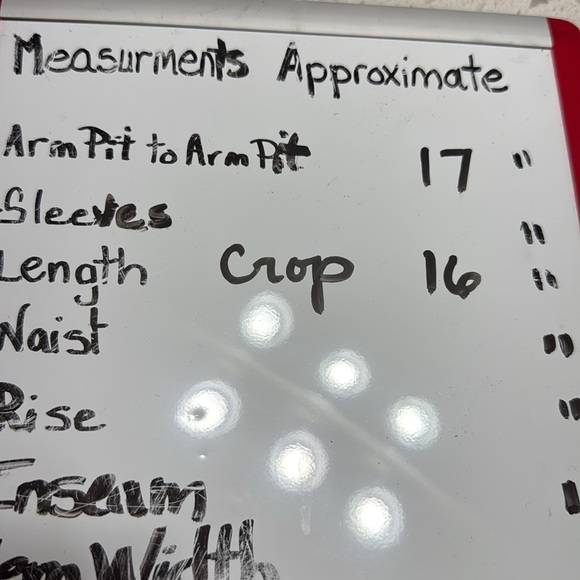 Measurments Approximate
Arm Pit to Arm Pit 17 "
Sleeves "
Length Crop 16 "
Waist "
Rise "
Inseam "
Width